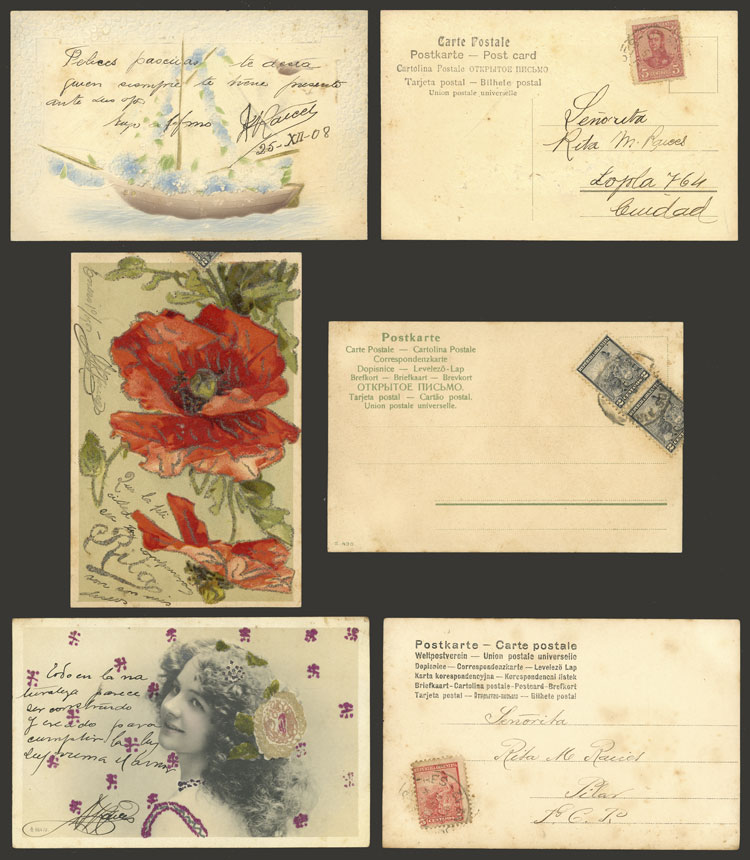 Felices pascuas te desea
quien siempre te tiene presente
ante sus ojos
tuyo affmo
25-XII-08
Carte Postale
Postkarte — Post card
Cartolina Postale ОТКРЫТОЕ ПИСЬМО
Tarjeta postal — Bilhete postal
Union postale universelle
5 5
Señorita
Rita M. Raices
764
Ciudad
Rita
Postkarte
Carte Postale — Cartolina Postale
Correspondenzkarte
Dopisnice — Levelező-Lap
Brefkort — Briefkaart — Brevkort
ОТКРЫТОЕ ПИСЬМО.
Tarjeta postal — Cartão postal.
Union postale universelle.
Todo en la na
turaleza parece
ser construido
y creado para
cumplir la ley
suprema el amor
Postkarte — Carte postale
Weltpostverein — Union postale universelle
Dopisnice — Correspondenzkarte — Levelező Lap
Karta korespondencyjna — Korespondencni listek
Briefkaart-Cartolina postale-Postcard-Brefkort
Tarjeta postal — Открытое-письмо — Bilhete postal
Señorita
Rita M Raices
Pilar
F. C. P.